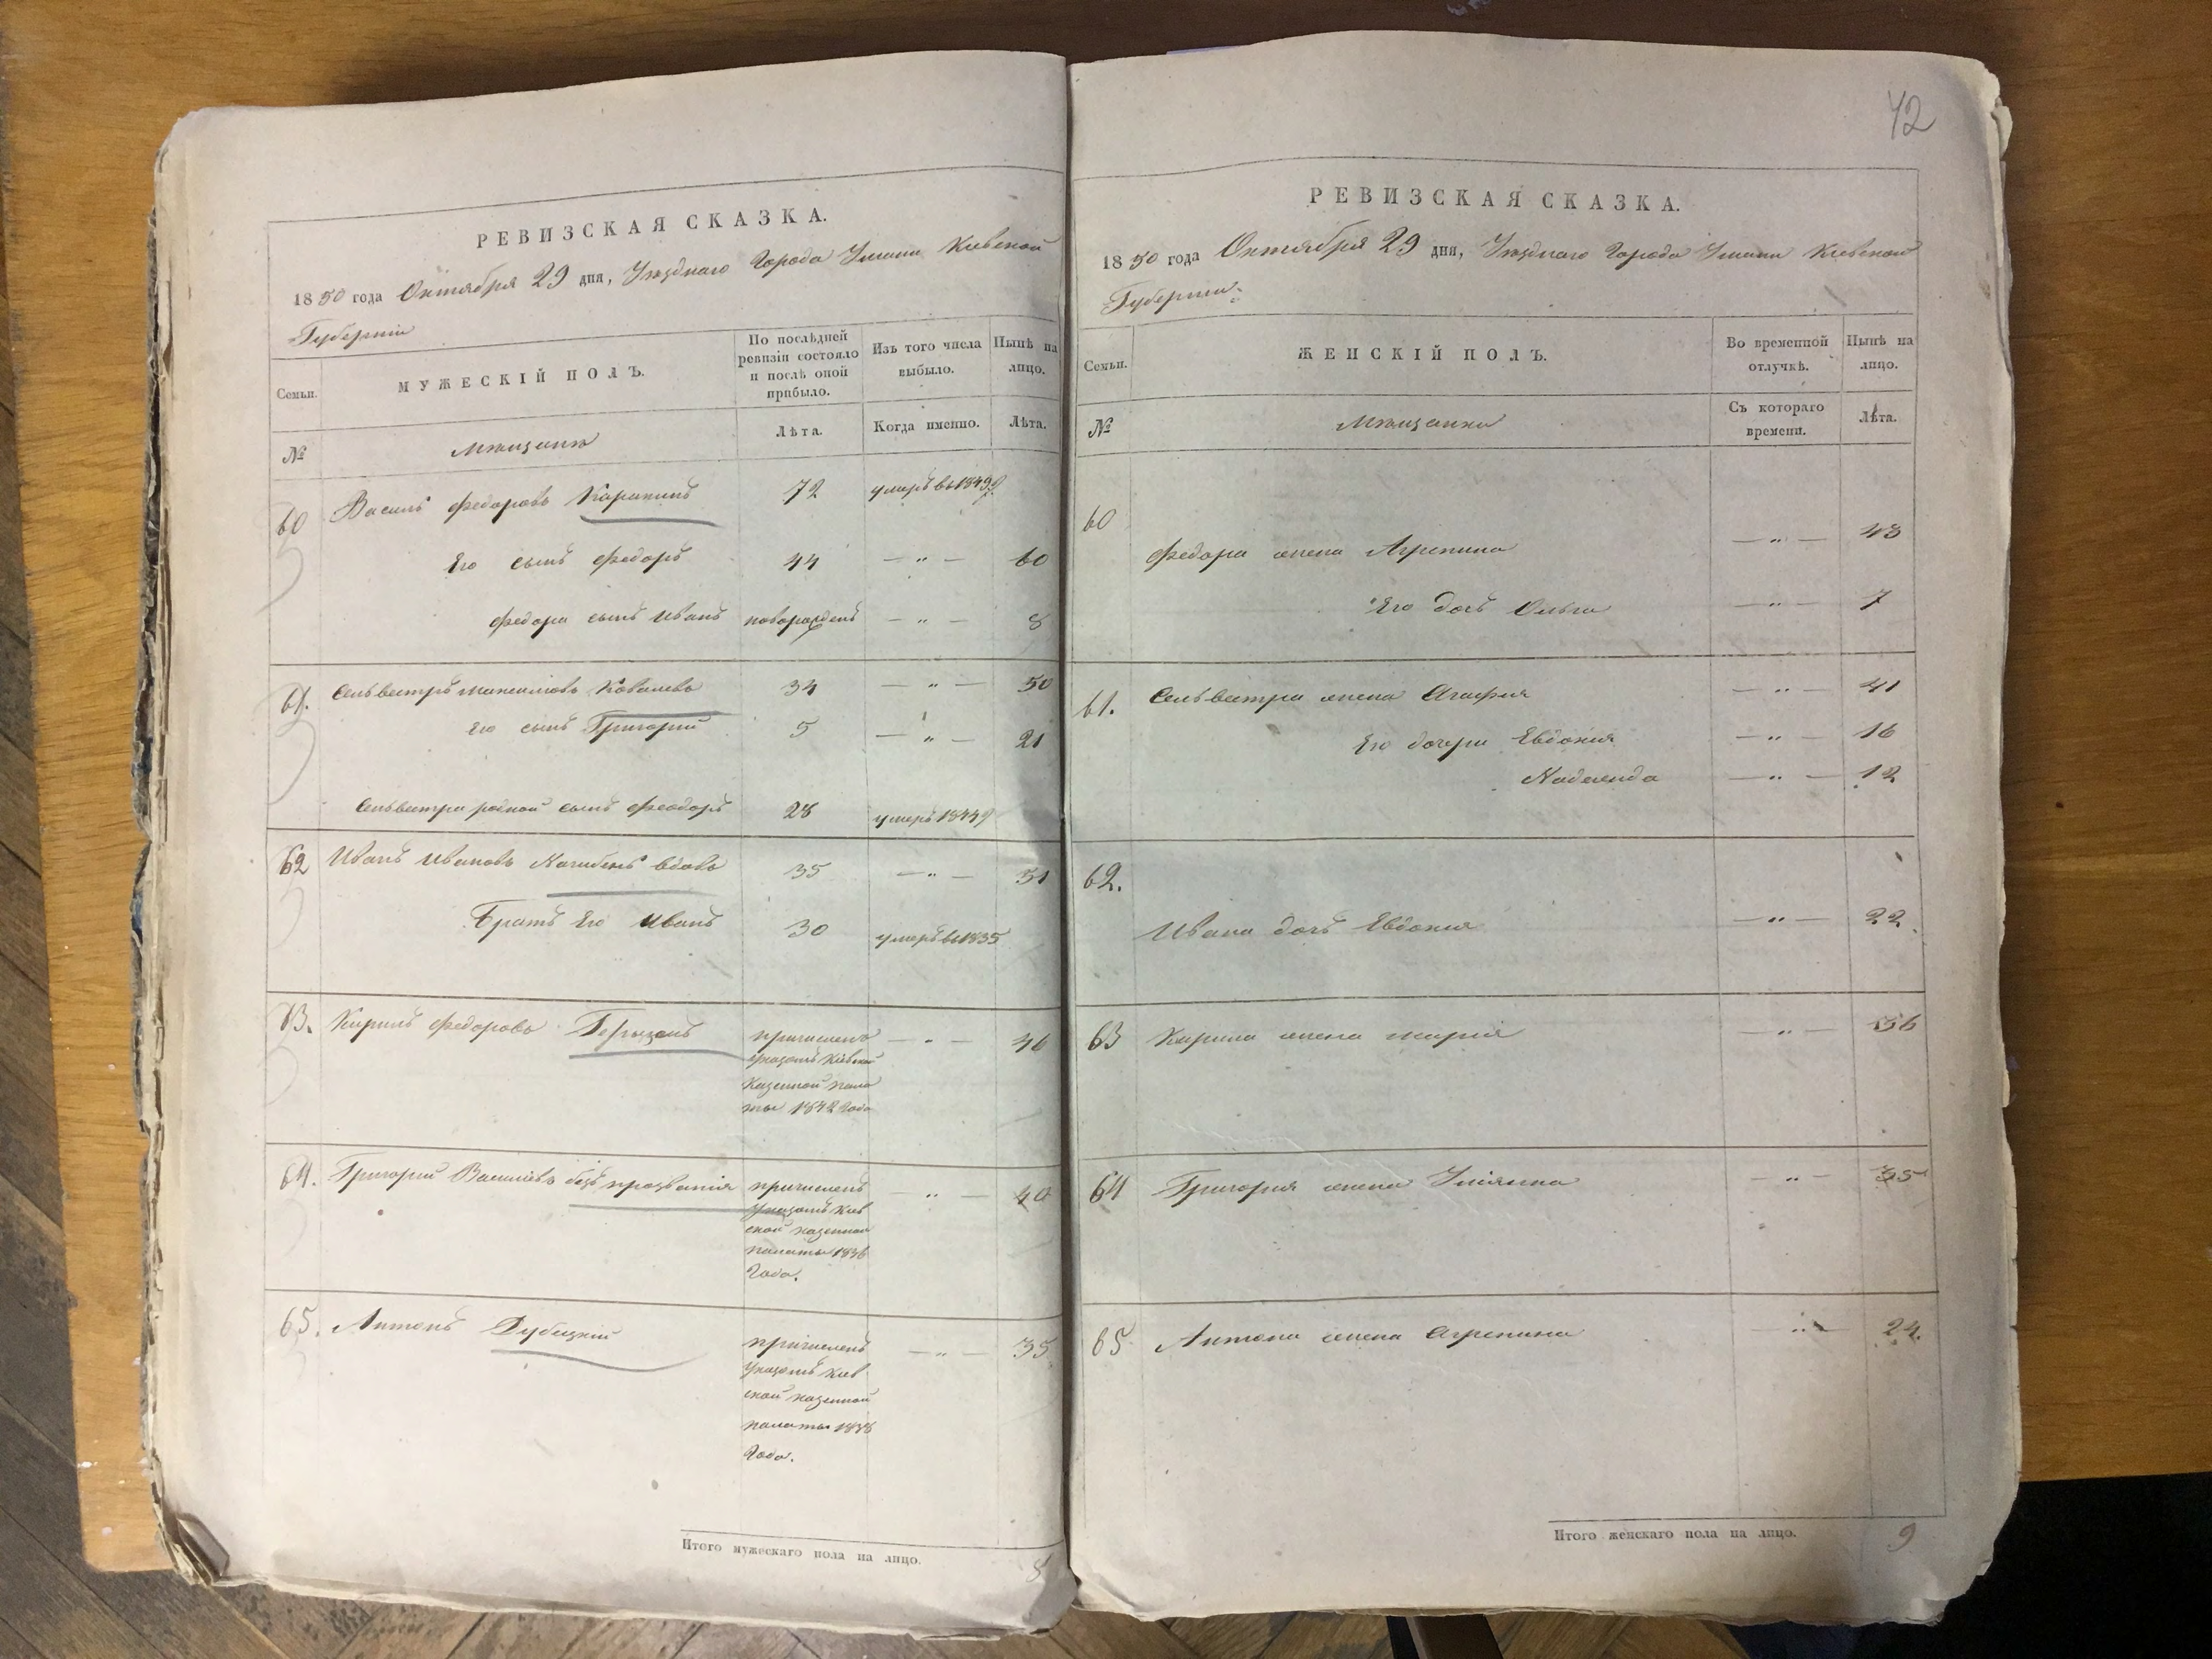 42
РЕВИЗСКАЯ СКАЗКА.
1850 года Октября 29 дня, Уѣзднаго Города Умани Кіевской
Губерніи
Семьи.
МУЖЕСКІЙ ПОЛЪ.
По послѣдней
ревизіи состояло
и послѣ оной
прибыло.
Изъ того числа
выбыло.
Нынѣ на
лицо.
№
Мѣщанѣ
Лѣта.
Когда именно.
Лѣта.
60
Василь Федоровъ 72 умеръ въ 1849
Его сынъ Федоръ 44 — " — 60
Федора сынъ Иванъ новорожденъ — " — 8
61. Сельвестръ Максимовъ Ковалевъ 34 — " — 50
Его сынъ Григорій 5 — " — 21
Сельвестра родной сынъ Феодоръ 28 умеръ 1849
62 Иванъ Ивановъ вдовъ 35 — " — 51
Братъ Его Иванъ 30 умеръ въ 1835
63. Кирилъ Федоровъ причисленъ — " — 46
Указомъ Кіевской
Казенной пала
ты 1842 Года
64. Григорій Василіевъ безъ прозванія причисленъ — " — 40
Указомъ Кіев
ской казенной
палаты 1836
Года.
65. Антонъ Дубицкій причисленъ — " — 35
Указомъ Кіев
ской казенной
палаты 1838
Года.
Итого мужескаго пола на лицо. 8
РЕВИЗСКАЯ СКАЗКА.
1850 года Октября 29 дня, Уѣзднаго Города Умани Кіевской
Губерніи
Семьи.
ЖЕНСКІЙ ПОЛЪ.
Во временной
отлучкѣ.
Нынѣ на
лицо.
№
Мѣщанки
Съ котораго
времени.
Лѣта.
60
Федора жена Агрепина — " — 43
Его дочь Ольга — " — 7
61. Сельвестра жена Агафия — " — 41
Его дочери Евдокия — " — 16
Надежда — " — 12
62.
Ивана дочь Евдокия — " — 22.
63 Кирила жена Марія — " — 36
64 Григорія жена Уліянна — " — 35
65 Антона жена Агрепина — " — 24.
Итого женскаго пола на лицо. 9